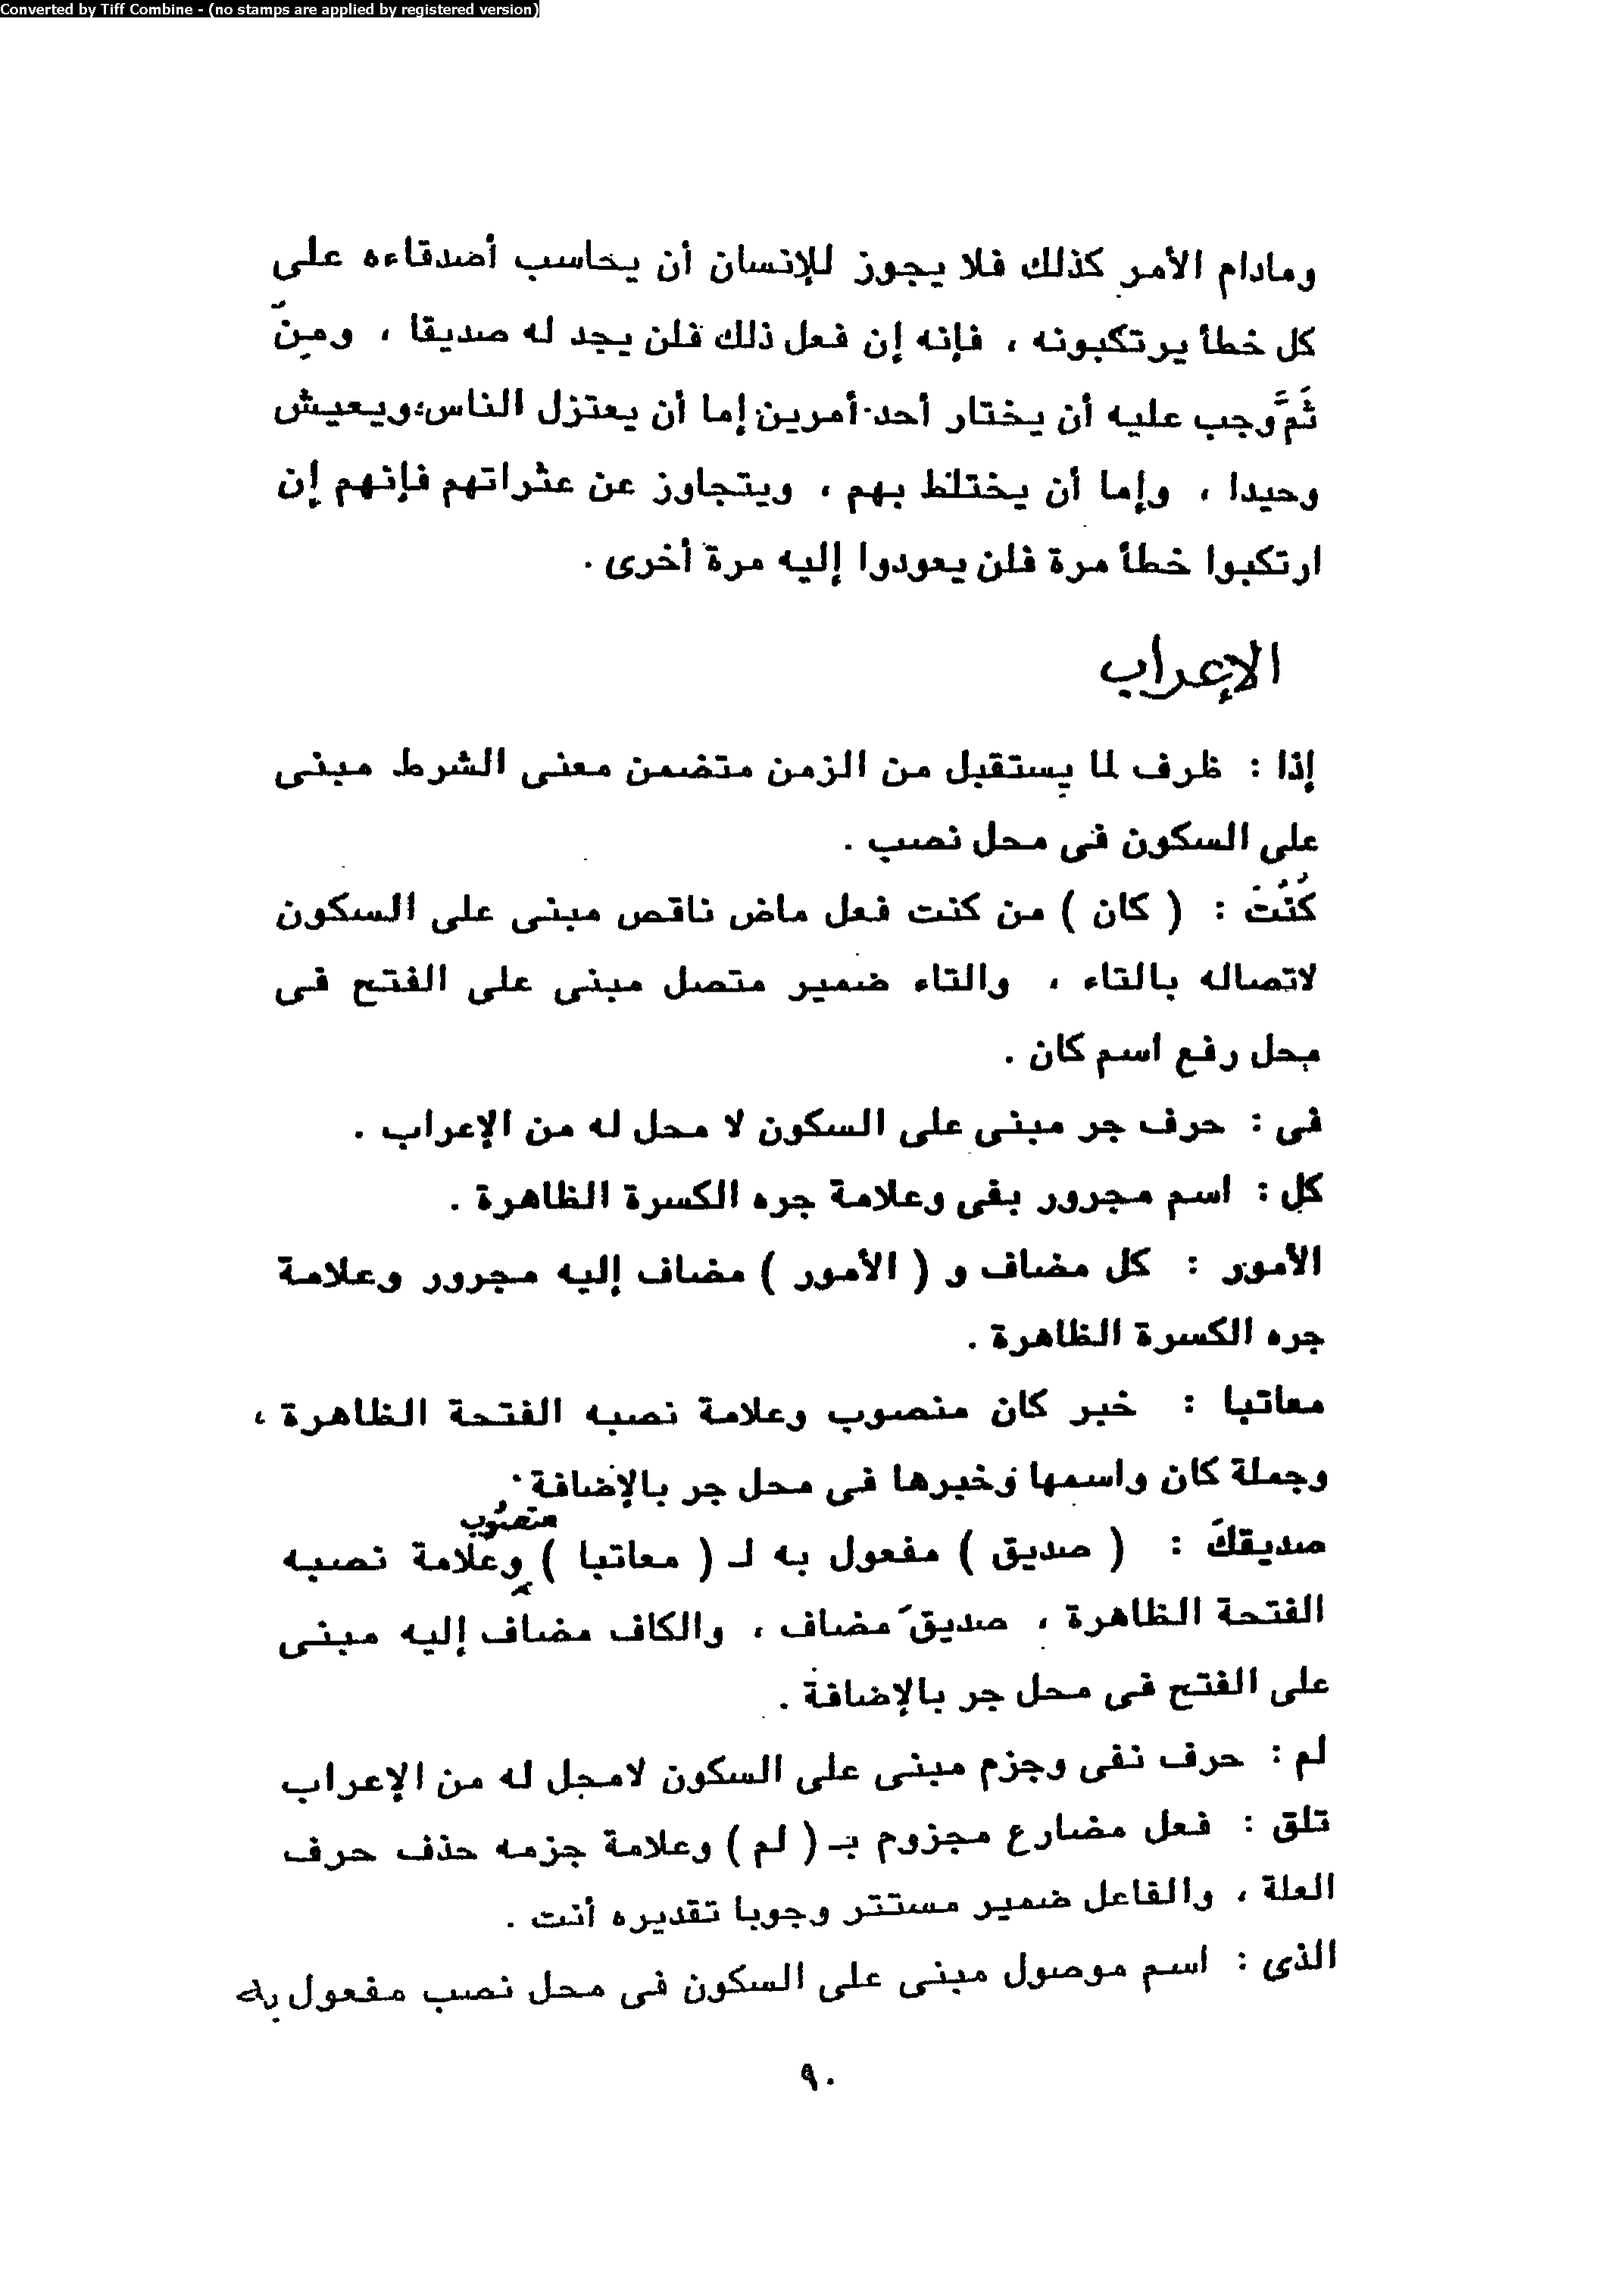 Converted by Tiff Combine - (no stamps are applied by registered version)
ومادام الأمر كذلك فلا يجوز للإنسان أن يحاسب أصدقاءه على
كل خطأ يرتكبونه ، فإنه إن فعل ذلك فلن يجد له صديقا ، ومِنْ
ثَمَّ وجب عليه أن يختار أحد أمرين إما أن يعتزل الناس ، ويعيش
وحيدا ، وإما أن يختلط بهم ، ويتجاوز عن عثراتهم فإنهم إن
ارتكبوا خطأ مرة فلن يعودوا إليه مرة أخرى .
الإعراب
إذا : ظرف لما يستقبل من الزمن متضمن معنى الشرط مبنى
على السكون فى محل نصب .
كُنْتَ : ( كان ) من كنت فعل ماض ناقص مبنى على السكون
لاتصاله بالتاء ، والتاء ضمير متصل مبنى على الفتح فى
محل رفع اسم كان .
فى : حرف جر مبنى على السكون لا محل له من الإعراب .
كل : اسم مجرور بفى وعلامة جره الكسرة الظاهرة .
الأمور : كل مضاف و ( الأمور ) مضاف إليه مجرور وعلامة
جره الكسرة الظاهرة .
معاتبا : خبر كان منصوب وعلامة نصبه الفتحة الظاهرة ،
وجملة كان واسمها وخبرها فى محل جر بالإضافة .
منصوب
صديقكَ : ( صديق ) مفعول به لـ ( معاتبا ) وعلامة نصبه
الفتحة الظاهرة ، صديقَ مضاف ، والكاف مضاف إليه مبنى
على الفتح فى محل جر بالإضافة .
لم : حرف نفى وجزم مبنى على السكون لامحل له من الإعراب
تلق : فعل مضارع مجزوم بـ ( لم ) وعلامة جزمه حذف حرف
العلة ، والفاعل ضمير مستتر وجوبا تقديره أنت .
الذى : اسم موصول مبنى على السكون فى محل نصب مفعول به
٩٠